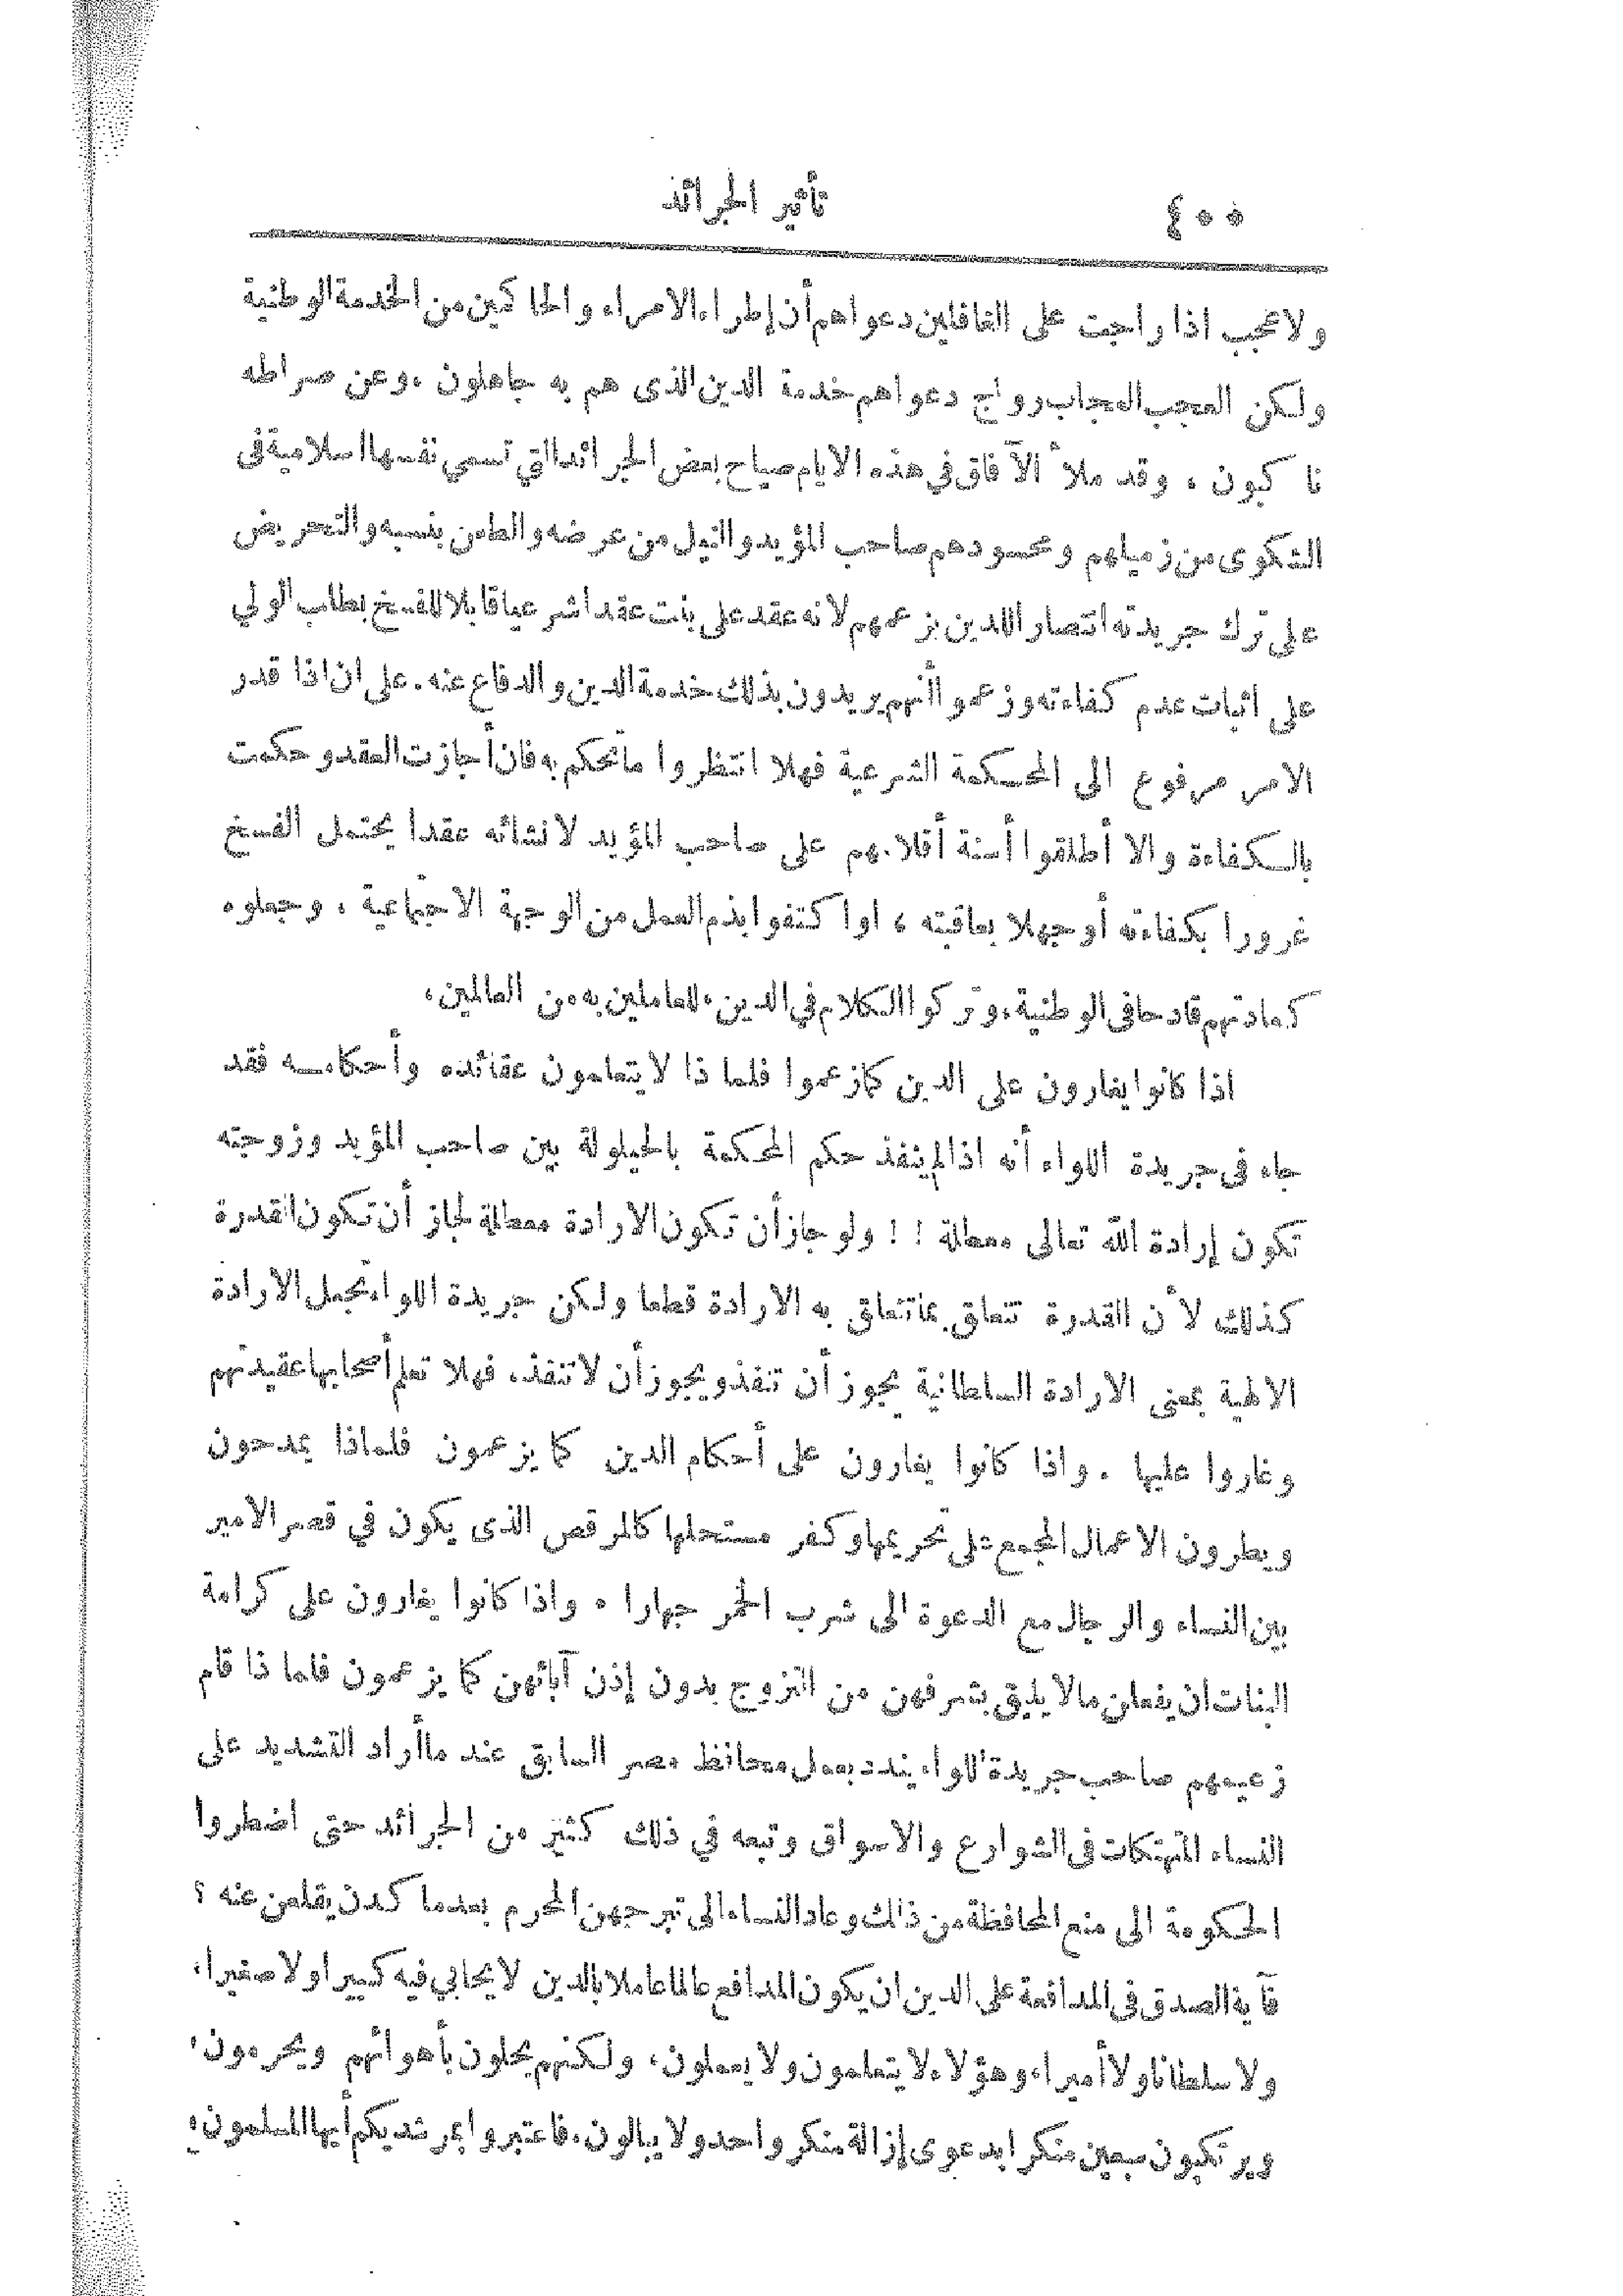 ٤٠٠
تأثير الجرائد
ولا عجب اذا راجت على الغافلين دعواهم أن إطراء الامراء والحاكمين من الخدمة الوطنية
ولكن العجب العجاب رواج دعواهم خدمة الدين الذى هم به جاهلون ، وعن صراطه
ناكبون ، وقد ملأ الآفاق في هذه الايام صياح بعض الجرائد التي تسمي نفسها اسلامية في
الشكوى من زميلهم ومحسودهم صاحب المؤيد والنيل من عرضه والطعن بنسبه والتحريض
على ترك جريدته انتصارا للدين بزعمهم لانه عقد على بنت عقدا شرعيا قابلا للفسخ بطلب الولي
على اثبات عدم كفاءته وزعموا أنهم يريدون بذلك خدمة الدين والدفاع عنه . على ان اذا قدر
الامر مرفوع الى المحكمة الشرعية فهلا انتظروا ما تحكم به فان أجازت العقد وحكمت
بالكفاءة والا أطلقوا أسنة أقلامهم على صاحب المؤيد لانشائه عقدا يحتمل الفسخ
غرورا بكفاءته أو جهلا بعاقبته ، او اكتفوا بذم العمل من الوجهة الاجتماعية ، وجعلوه
كعادتهم قادحا فى الوطنية ، وتركوا الكلام في الدين ، للعاملين به من العالمين ،
اذا كانوا يغارون على الدين كما زعموا فلما ذا لا يتعلمون عقائده وأحكامه فقد
جاء فى جريدة اللواء أنه اذا لم ينفذ حكم المحكمة بالحيلولة بين صاحب المؤيد وزوجته
تكون إرادة الله تعالى معطلة ! ! ولو جاز أن تكون الارادة معطلة لجاز أن تكون القدرة
كذلك لأن القدرة تتعلق بما تتعلق به الارادة قطعا ولكن جريدة اللواء تجعل الارادة
الالهية بمعنى الارادة السلطانية يجوز أن تنفذ ويجوز أن لا تنفذ ، فهلا تعلم أصحابها عقيدتهم
وغاروا عليها . واذا كانوا يغارون على أحكام الدين كما يزعمون فلماذا يمدحون
ويطرون الاعمال المجمع على تحريمها وكفر مستحلها كالمرقص الذى يكون في قصر الامير
بين النساء والرجال مع الدعوة الى شرب الخمر جهارا . واذا كانوا يغارون على كرامة
البنات ان يفعلن ما لا يليق بشرفهن من التزوج بدون إذن آبائهن كما يزعمون فلما ذا قام
زعيمهم صاحب جريدة اللواء يندد بعمل محافظ مصر السابق عند ما أراد التشديد على
النساء المتهتكات فى الشوارع والاسواق وتبعه في ذلك كثير من الجرائد حتى اضطروا
الحكومة الى منع المحافظة من ذلك وعاد النساء الى تبرجهن المحرم بعدما كدن يقلعن عنه ؟
فآية الصدق فى المدافعة على الدين ان يكون المدافع عالما عاملا بالدين لا يحابي فيه كبيرا ولا صغيرا ،
ولا سلطانا ولا أميرا ، وهؤلاء لا يتعلمون ولا يعملون ، ولكنهم يحلون بأهوائهم ويحرمون ،
ويرتكبون سبعين منكرا بدعوى إزالة منكر واحد ولا يبالون ، فاعتبروا بمرشديكم أيها المسلمون ،